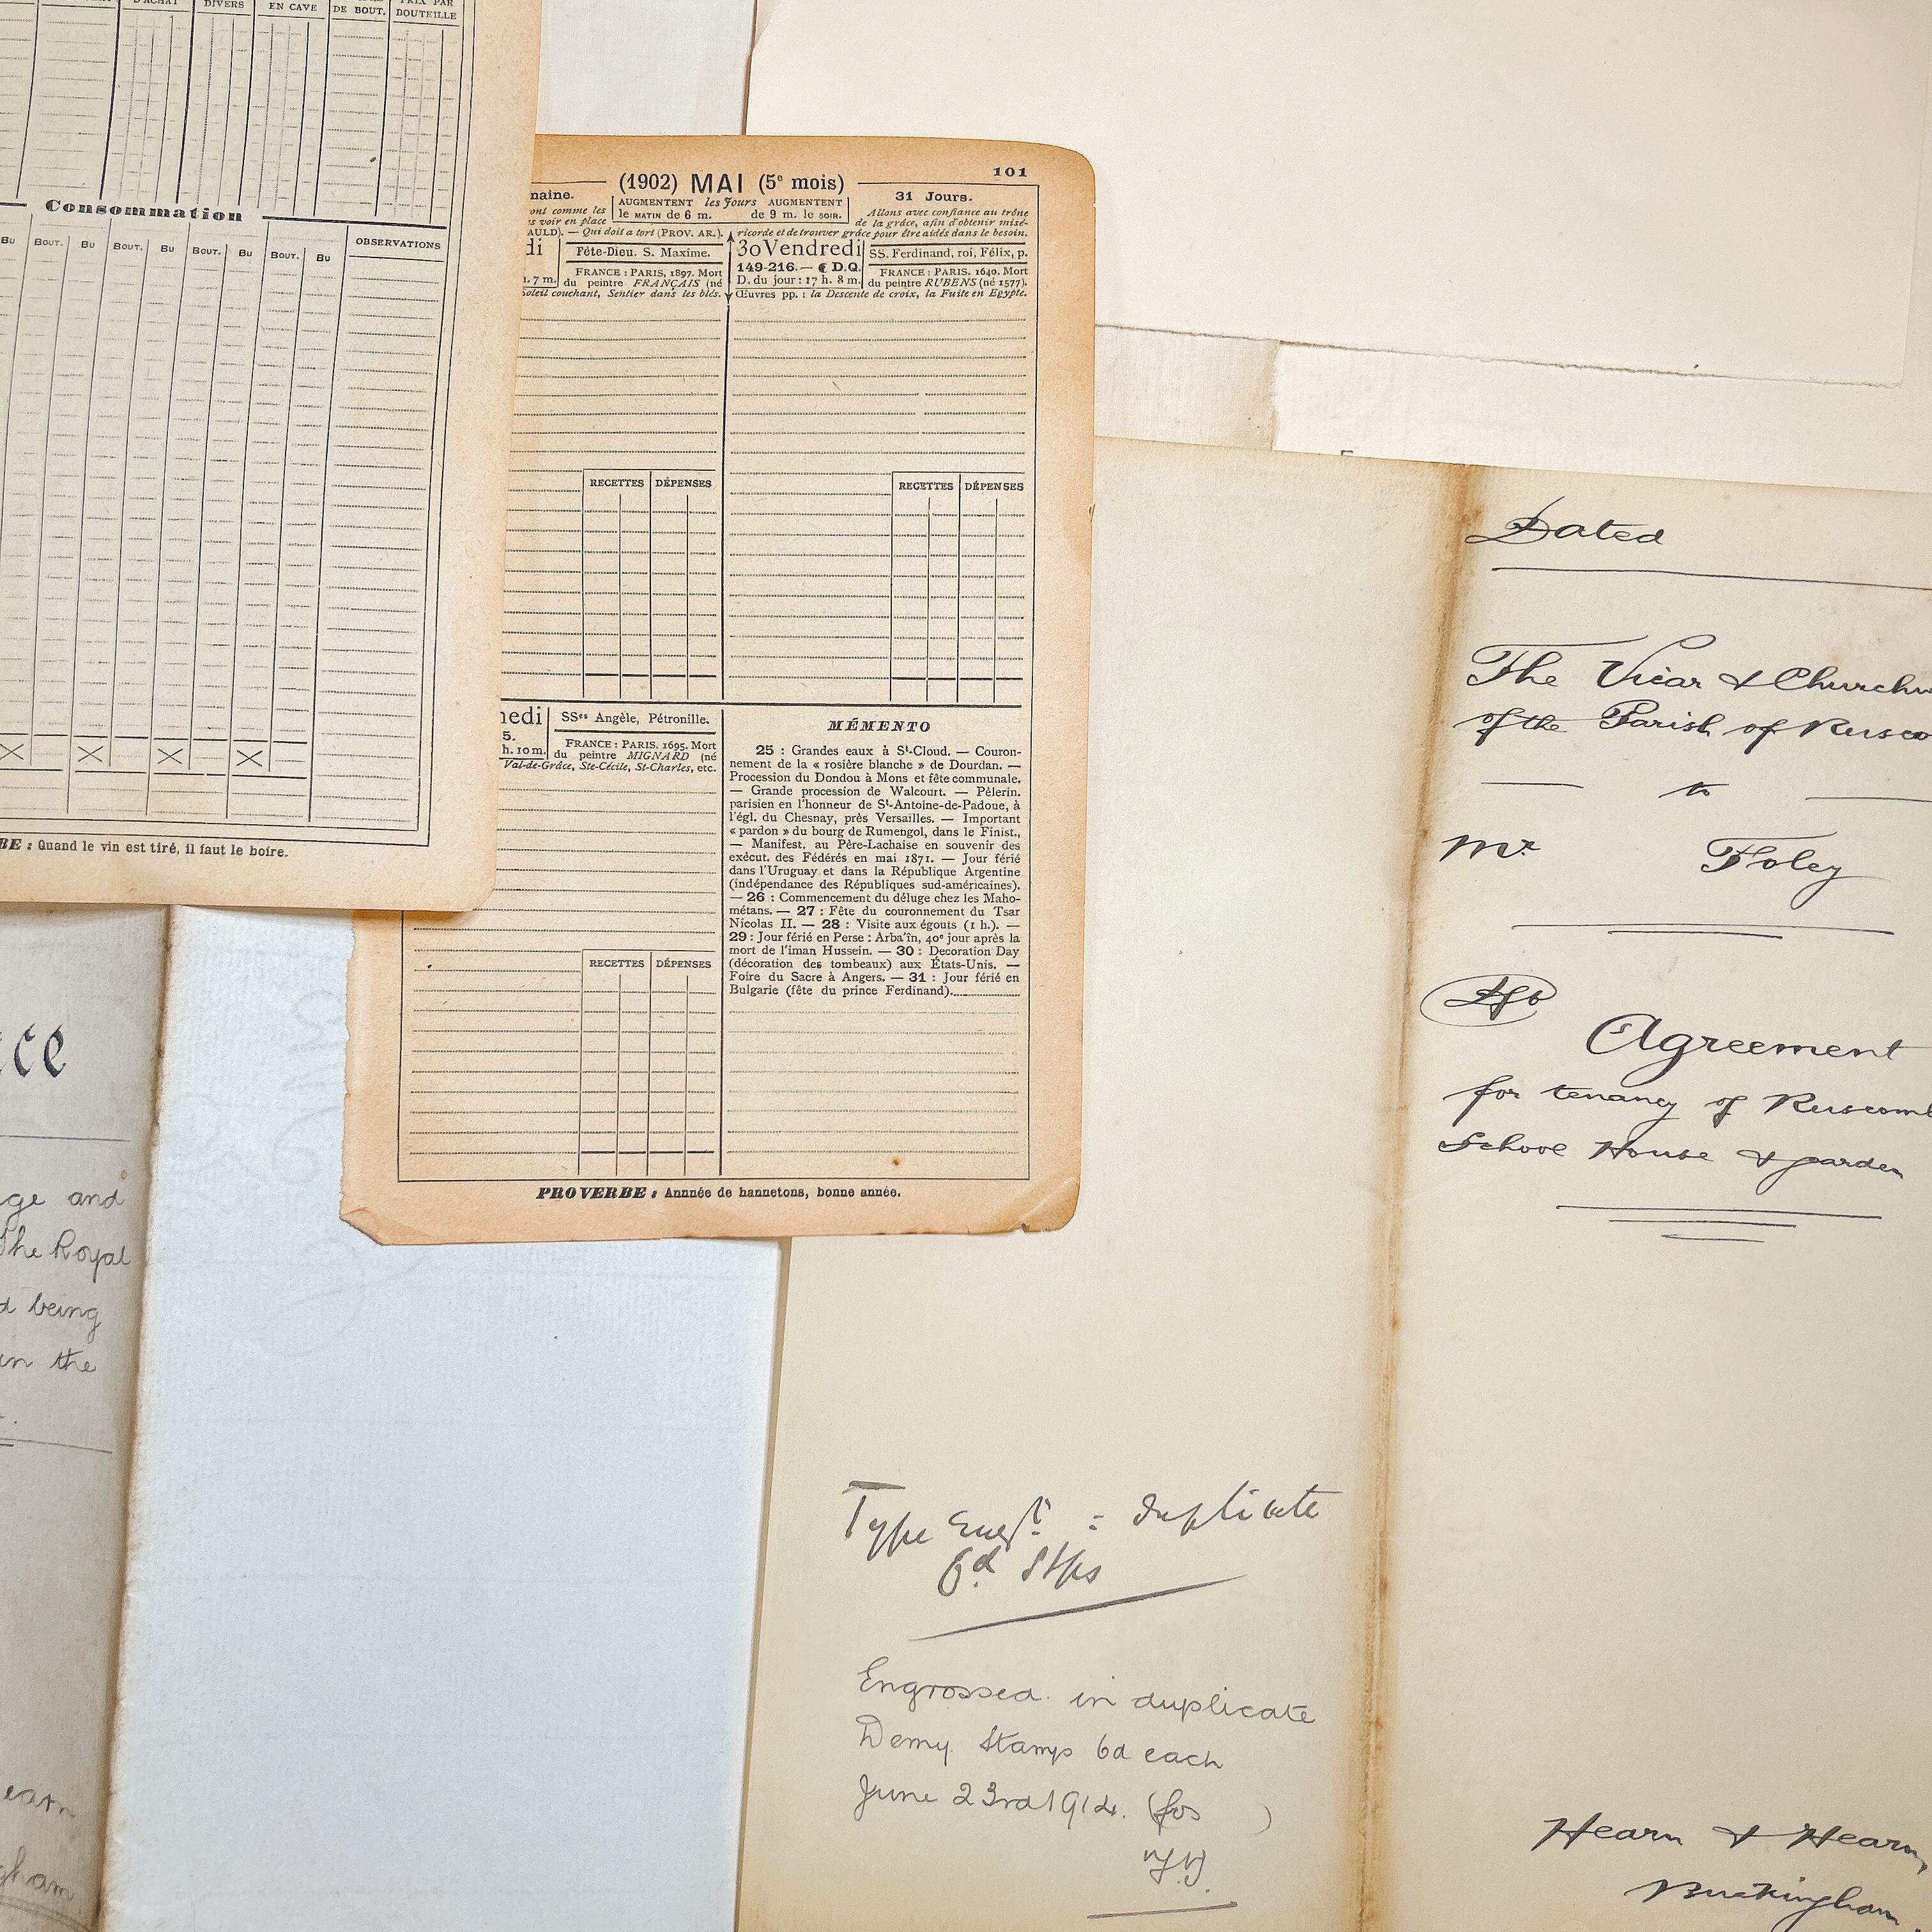 D'ACHAT
DIVERS
EN CAVE
DE BOUT.
PRIX PAR
BOUTEILLE
Consommation
BU BOUT. BU BOUT. BU BOUT. BU BOUT. BU OBSERVATIONS
BE : Quand le vin est tiré, il faut le boire.
101
(1902) MAI (5e mois)
naine.
AUGMENTENT les Jours AUGMENTENT
le MATIN de 6 m. de 9 m. le SOIR.
31 Jours.
ont comme les
s voir en place
AULD). — Qui doit a tort (PROV. AR.).
Allons avec confiance au trône
de la grâce, afin d'obtenir misé-
ricorde et de trouver grâce pour être aidés dans le besoin.
di
Fête-Dieu. S. Maxime.
FRANCE : PARIS, 1897. Mort
h. 7 m. du peintre FRANÇAIS (né
Soleil couchant, Sentier dans les blés.
30 Vendredi
SS. Ferdinand, roi, Félix, p.
149-216. — D.Q.
D. du jour : 17 h. 8 m.
FRANCE : PARIS. 1640. Mort
du peintre RUBENS (né 1577).
Œuvres pp. : la Descente de croix, la Fuite en Egypte.
RECETTES DÉPENSES
RECETTES DÉPENSES
nedi
SSes Angèle, Pétronille.
5.
h. 10 m.
FRANCE : PARIS, 1695. Mort
du peintre MIGNARD (né
Val-de-Grâce, Ste-Cécile, St-Charles, etc.
RECETTES DÉPENSES
MÉMENTO
25 : Grandes eaux à St-Cloud. — Couron-
nement de la « rosière blanche » de Dourdan. —
Procession du Dondou à Mons et fête communale.
— Grande procession de Walcourt. — Pèlerin.
parisien en l'honneur de St-Antoine-de-Padoue, à
l'égl. du Chesnay, près Versailles. — Important
« pardon » du bourg de Rumengol, dans le Finist.,
— Manifest. au Père-Lachaise en souvenir des
exécut. des Fédérés en mai 1871. — Jour férié
dans l'Uruguay et dans la République Argentine
(indépendance des Républiques sud-américaines).
— 26 : Commencement du déluge chez les Maho-
métans. — 27 : Fête du couronnement du Tsar
Nicolas II. — 28 : Visite aux égouts (1 h.). —
29 : Jour férié en Perse : Arba'în, 40e jour après la
mort de l'iman Hussein. — 30 : Decoration Day
(décoration des tombeaux) aux États-Unis. —
Foire du Sacre à Angers. — 31 : Jour férié en
Bulgarie (fête du prince Ferdinand).
PROVERBE : Annnée de hannetons, bonne année.
Dated
The Vicar & Churchw
of the Parish of Rusco
to
Mr. Foley
Agreement
for tenancy of Ruscomb
School House & garden
Hearn & Hearn,
Buckingham.
Type Engt : duplicate
6d Stps
Engrossed in duplicate
Demy Stamps 6d each
June 23rd 1914. (fos )
ce
ge and
The Royal
d being
in the
earn
gham